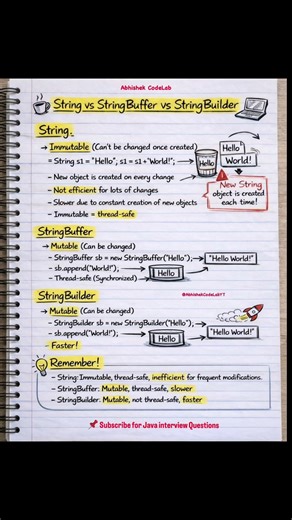 Abhishek CodeLab
String vs StringBuffer vs StringBuilder
String
→ Immutable (Can't be changed once created)
= String s1 = "Hello", s1 = s1 + "World!";
Hello
Hello
World!
- New object is created on every change
- Not efficient for lots of changes
- Slower due to constant creation of new objects
- Immutable = thread-safe
New String
object is created
each time!
StringBuffer
→ Mutable (Can be changed)
- StringBuffer sb = new StringBuffer("Hello");
"Hello World!"
- sb.append("World!");
Hello
- Thread-safe (Synchronized)
StringBuilder
@AbhishekCodeLabYT
→ Mutable (Can be changed)
- StringBuilder sb = new StringBuilder("Hello");
- sb.append("World!");
Hello
"Hello World!"
- Faster!
Remember!
- String: Immutable, thread-safe, inefficient for frequent modifications.
- StringBuffer: Mutable, thread-safe, slower
- StringBuilder: Mutable, not thread-safe, faster
📌 Subscribe for Java interview Questions